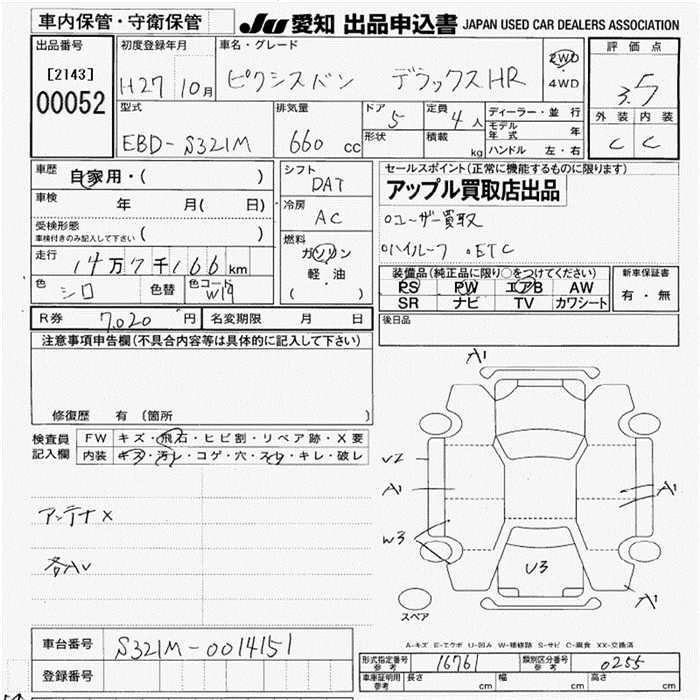 車内保管・守衛保管
JU 愛知 出品申込書 JAPAN USED CAR DEALERS ASSOCIATION
出品番号 初度登録年月 車名・グレード 2WD ・ 4WD 評価点
[2143]
00052 H27 10月 ピクシスバン デラックスHR 3.5
外装 内装
C C
型式 排気量 ドア 定員 ディーラー・並行
EBD-S321M 660 cc 5 4人 モデル年式 年
形状 積載 kg ハンドル 左・右
車歴 自家用・( )
シフト DAT
セールスポイント(正常に機能するものに限ります)
アップル買取店出品
車検 年 月( 日)
冷房 AC
○ユーザー買取
受検形態 車検付きのみ記入して下さい ( )
燃料 ガソリン 軽・油 ( )
○ハイルーフ ○ETC
走行 14万7千166km
装備品(純正品に限り○をつけてください) 新車保証書
色 シロ 色替 色コード W19
PS PW エアB AW 有・無
SR ナビ TV カワシート
R券 7,020円 名変期限 月 日
後日品
注意事項申告欄(不具合内容等は具体的に記入して下さい)
修復歴 有 〔箇所 〕
検査員記入欄 FW キズ・飛石・ヒビ割・リペア跡・X要
内装 キズ・汚レ・コゲ・穴・スレ・キレ・破レ
アンテナX
各AU
A1
U2
A1
A1
W3
U3
A1
スペア
A-キズ E-エクボ U-凹み W-補修跡 S-サビ C-腐食 XX-交換済
車台番号 S321M-0014151
登録番号
形式指定番号 参考 16761 類別区分番号 参考 0255
車庫証明用 参考 長さ cm 幅 cm 高さ cm